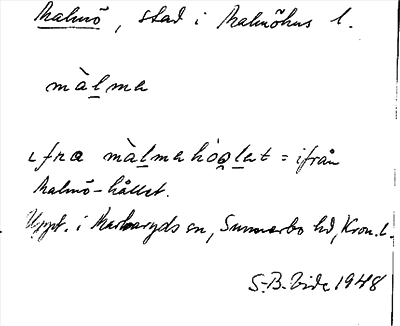 Malmö, stad i Malmöhus l.
màl̲ma
ɩfra màl̲mahòo̲l̲at = ifrån
Malmö-hållet.
Uppt. i Markaryds sn, Sunnerbo hd, Kron. l.
S.-B. Vide 1948